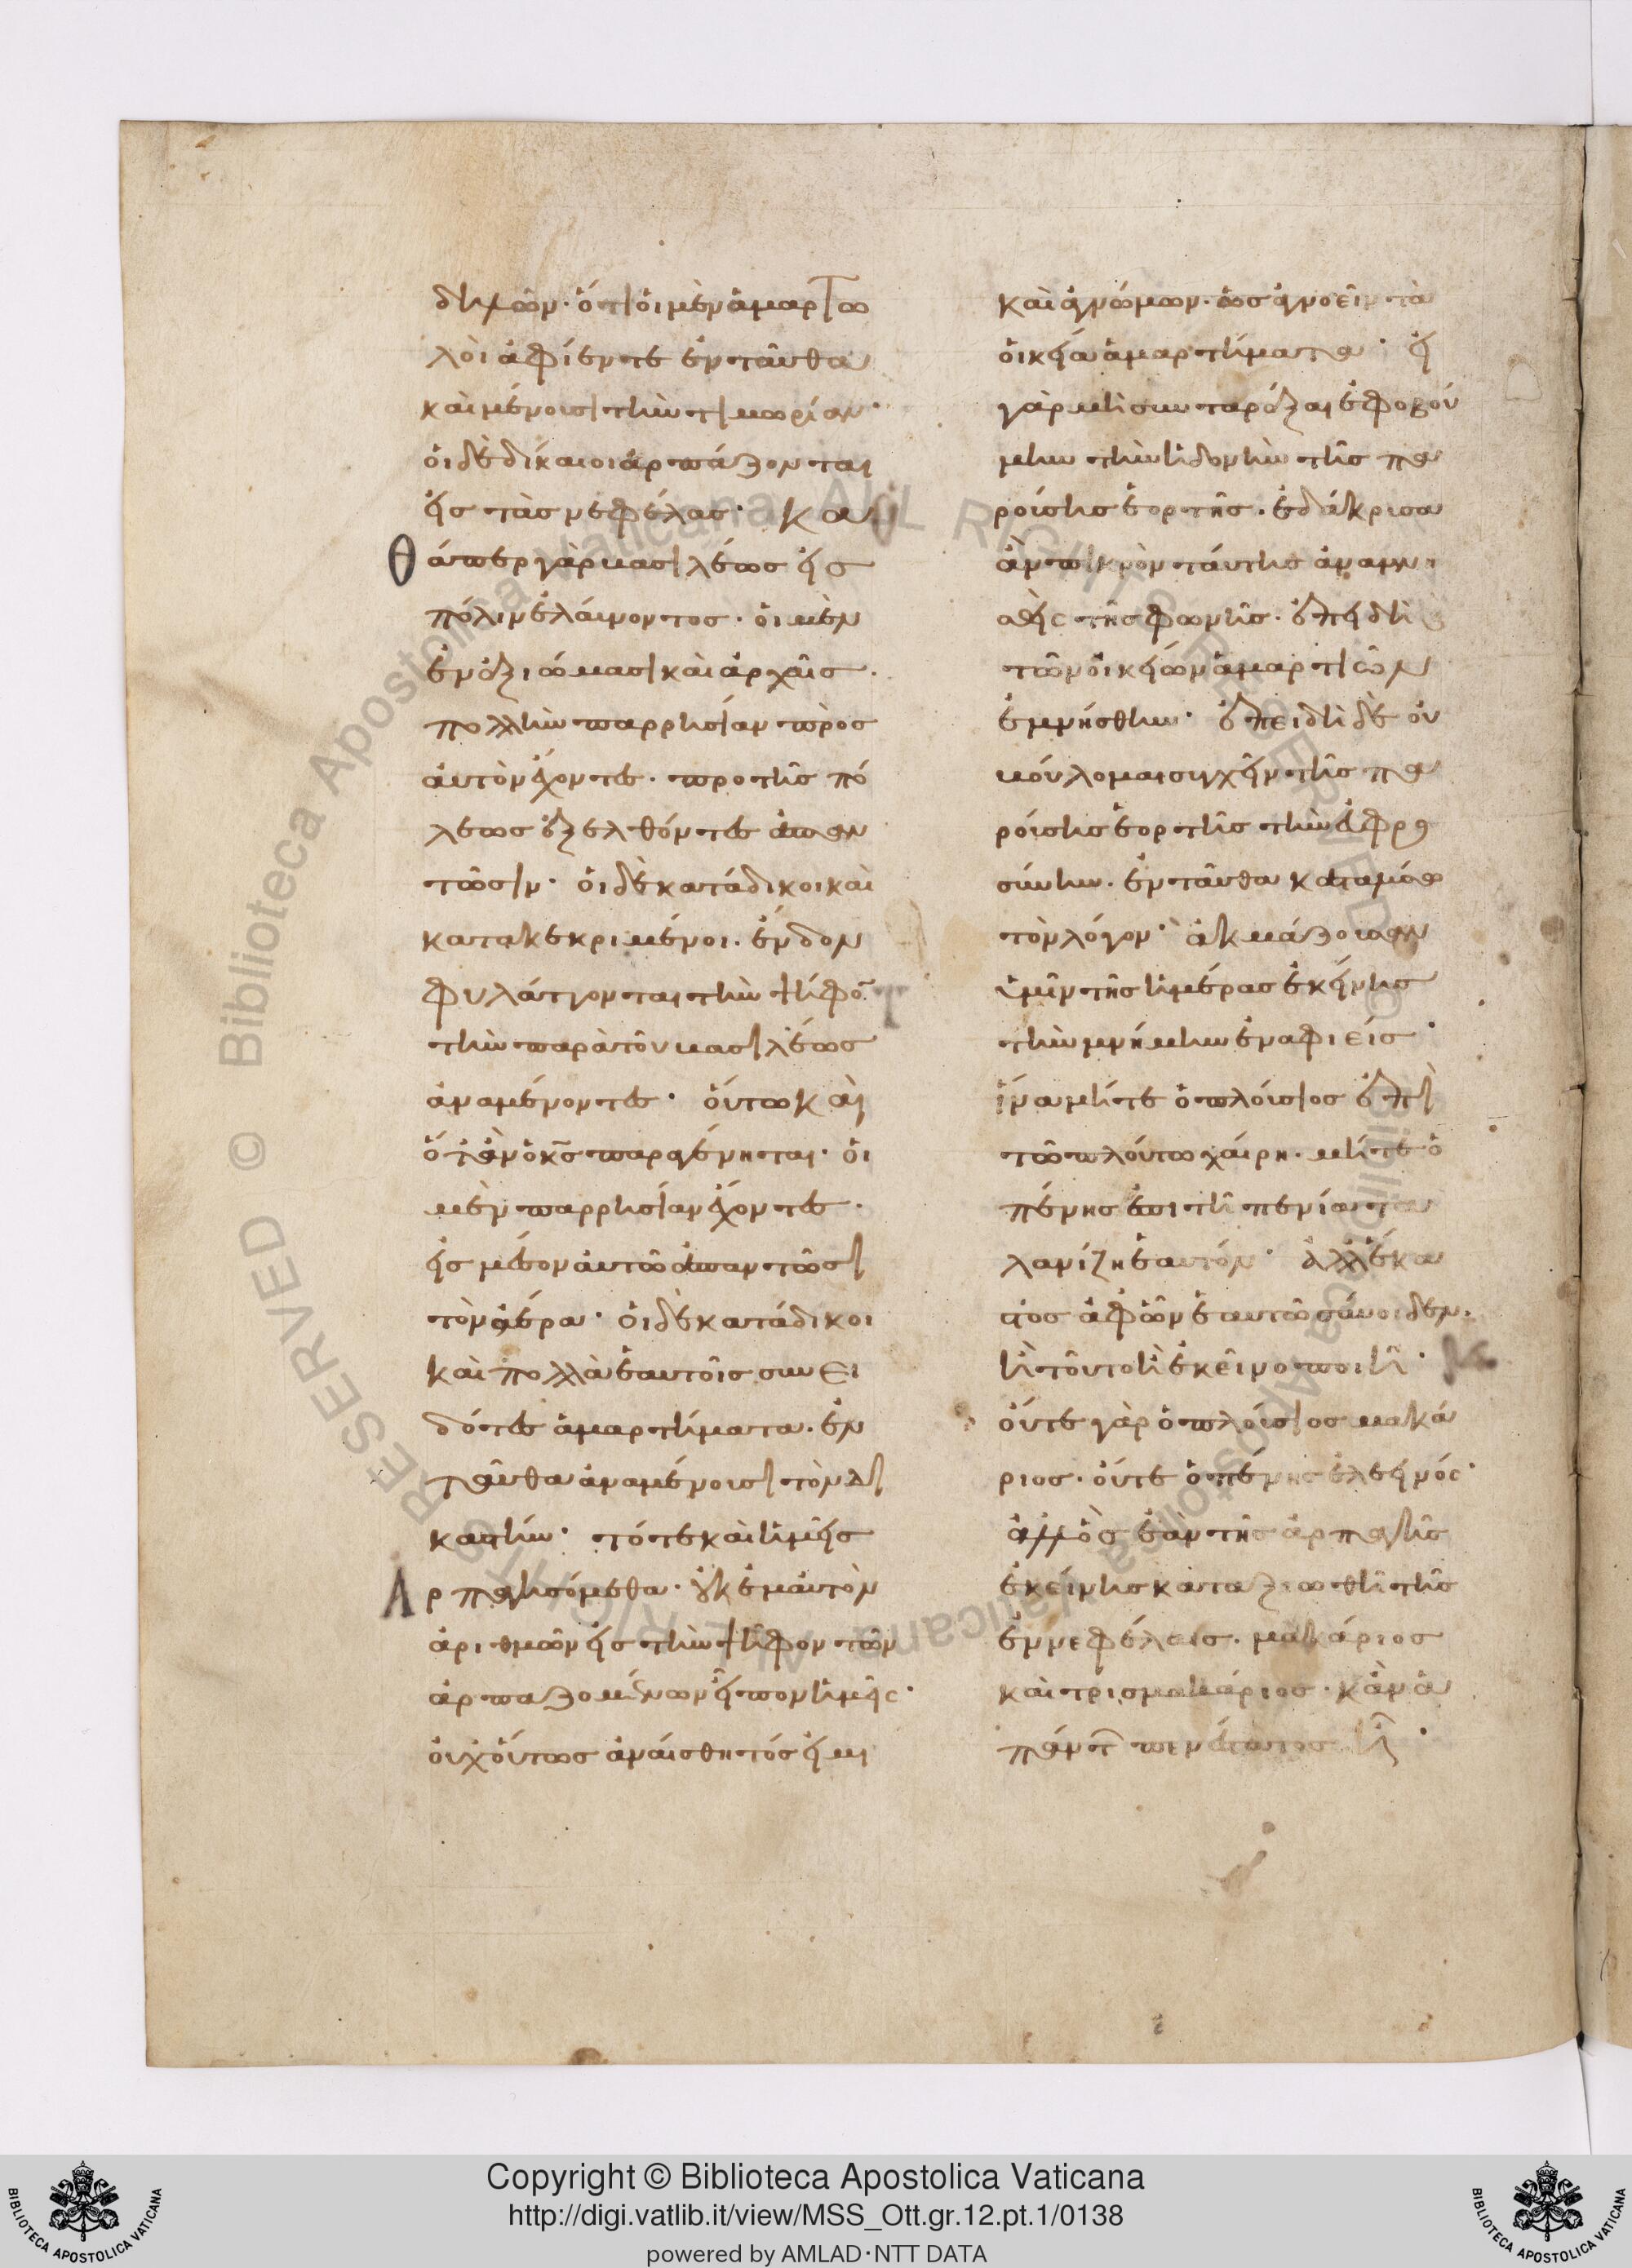 δηλῶν· ὅτι οἱ μὲν ἁμαρτω
λοὶ ἀφίενται ἐνταῦθα
καὶ μένουσι τὴν τιμωρίαν·
οἱ δὲ δίκαιοι ἁρπάζονται
εἰς τὰς νεφέλας· Κα
θάπερ γὰρ βασιλέως εἰς
πόλιν ἐλαύνοντος· οἱ μὲν
ἐν ἀξιώμασι καὶ ἀρχαῖς·
πολλὴν παρρησίαν πρὸς
αὐτὸν ἔχοντες· προ τῆς πό
λεως ἐξελθόντες ἀπαν
τῶσιν· οἱ δὲ κατάδικοι καὶ
κατακεκριμένοι· ἔνδον
φυλάττονται τὴν ψῆφον
τὴν παρὰ τοῦ βασιλέως
ἀναμένοντες· οὕτω καὶ
ὅταν ὁ κς παραγένηται· οἱ
μὲν παρρησίαν ἔχοντες·
εἰς μέσον αὐτῶ ἀπαντῶσι
τὸν ἀέρα· οἱ δὲ κατάδικοι
καὶ πολλὰ ἑαυτοῖς συνει
δότες ἁμαρτήματα· ἐν
ταῦθα ἀναμένουσι τὸν δι
καστήν· τότε καὶ ἡμεῖς
ἁρπαγησόμεθα· οὐκ ἐμαυτὸν
ἀριθμῶν εἰς τὴν ψῆφον τῶν
ἁρπαζομένων εἶπον ἡμεῖς·
οὐχ οὕτως ἀναίσθητός εἰμι
καὶ ἀγνώμων· ὡς ἀγνοεῖν τὰ
οἰκεῖα ἁμαρτήματα· εἰ
γὰρ μὴ συνταράξαι ἐφοβού
μην τὴν ἡδονὴν τῆς πα
ρούσης ἑορτῆς· ἐδάκρυσα
ἂν πικρὸν ταύτης ἀναμνη
σθεὶς τῆς φωνῆς· ἐπειδὴ
τῶν οἰκείων ἁμαρτιῶν
ἐμνήσθην· ἐπειδὴ δὲ οὐ
βούλομαι συγχεῖν τῆς πα
ρούσης ἑορτῆς τὴν εὐφρο
σύνην· ἐνταῦθα καταπαύσω
τὸν λόγον· ἀκμάζουσαν
ὑμῖν τῆς ἡμέρας ἐκείνης
τὴν μνήμην ἐναφιείς·
ἵνα μήτε ὁ πλούσιος ἐπὶ
τῶ πλούτω χαίρη· μήτε ὁ
πένης ἐπὶ τῆ πενία τα
λανίζη ἑαυτόν· ἀλλ' ἕκα
στος ἀφ' ὧν ἑαυτῶ σύνοιδεν·
ἢ τοῦτο ἢ ἐκεῖνο ποιῆ·
οὔτε γὰρ ὁ πλούσιος μακά
ριος· οὔτε ὁ πένης ἐλεεινός·
ἀλλ' ὃς ἐὰν τῆς ἁρπαγῆς
ἐκείνης καταξιωθῆ τῆς
ἐν νεφέλαις· μακάριος
καὶ τρισμακάριος· κἂν ἁ
πάντ πενέστατος ἦ·
Copyright © Biblioteca Apostolica Vaticana
http://digi.vatlib.it/view/MSS_Ott.gr.12.pt.1/0138
powered by AMLAD·NTT DATA